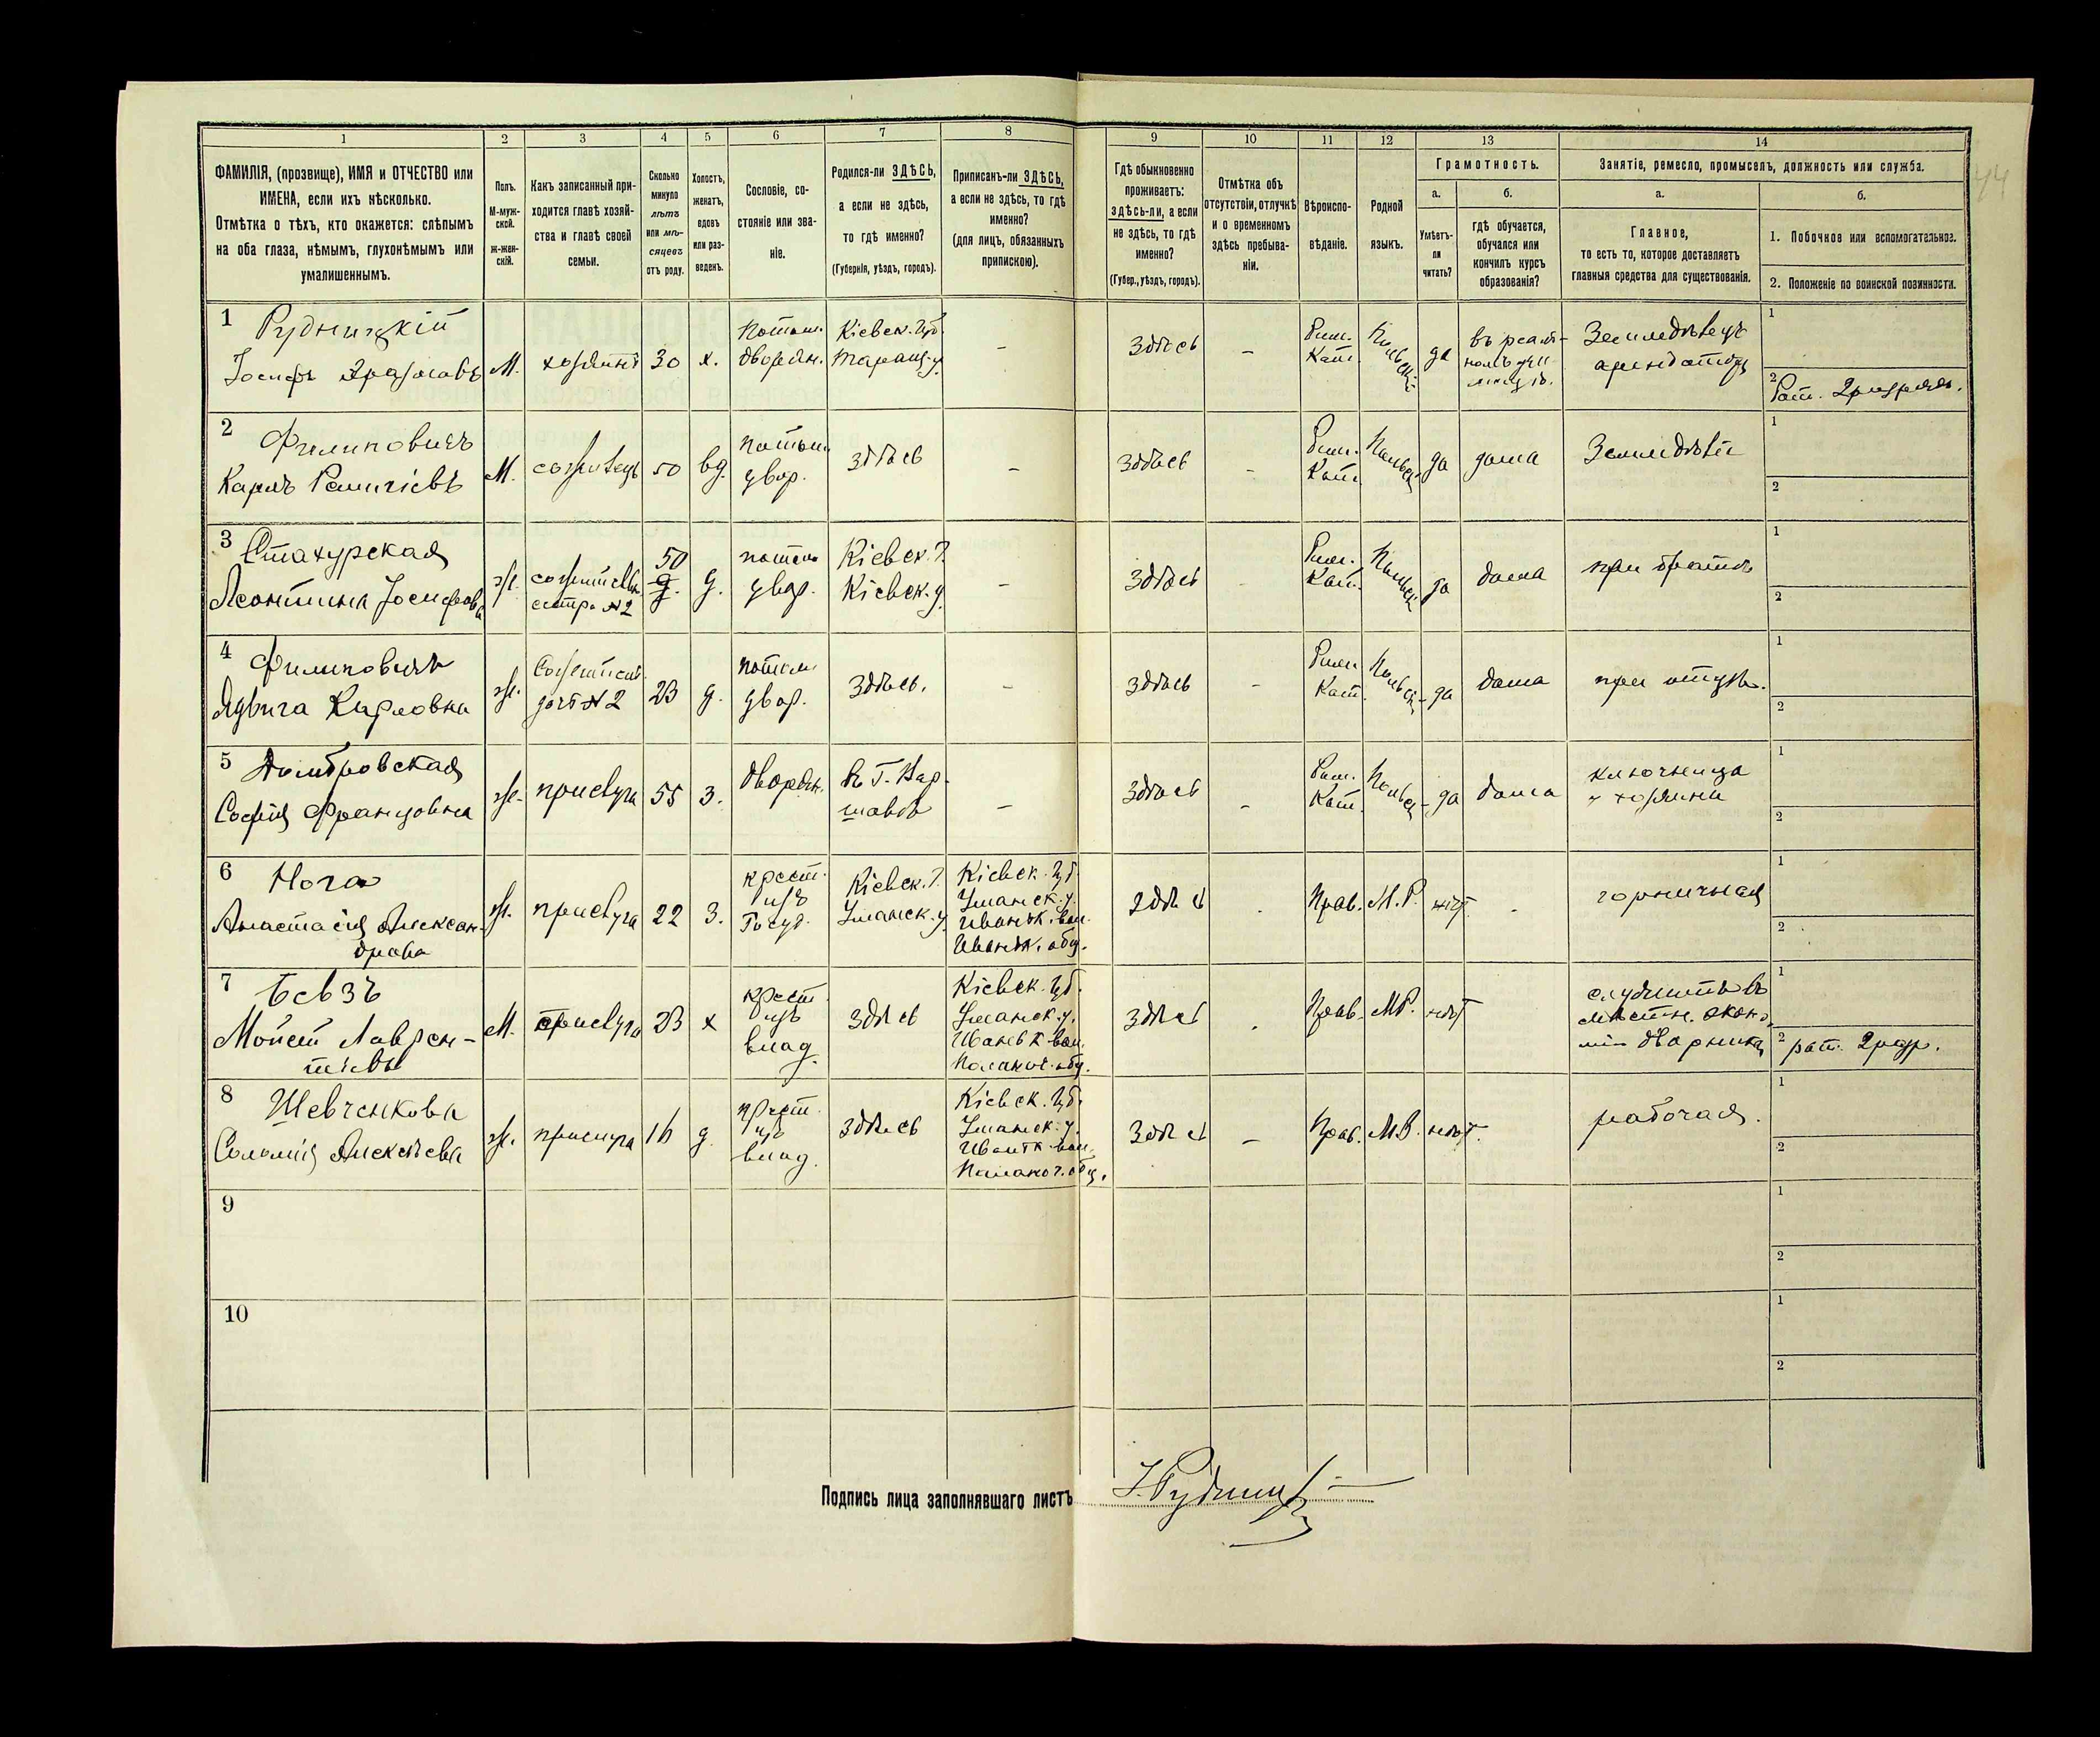 1 2 3 4 5 6 7 8 9 10 11 12 13 14
ФАМИЛІЯ, (прозвище), ИМЯ и ОТЧЕСТВО или
ИМЕНА, если ихъ нѣсколько.
Отмѣтка о тѣхъ, кто окажется: слѣпымъ
на оба глаза, нѣмымъ, глухонѣмымъ или
умалишеннымъ.
Полъ.
М-муж-
ской.
Ж-жен-
скій.
Какъ записанный при-
ходится главѣ хозяй-
ства и главѣ своей
семьи.
Сколько
минуло
лѣтъ
или мѣ-
сяцевъ
отъ роду.
Холостъ,
женатъ,
вдовъ
или раз-
веденъ.
Сословіе, со-
стояніе или зва-
ніе.
Родился-ли ЗДѢСЬ,
а если не здѣсь,
то гдѣ именно?
(Губернія, уѣздъ, городъ).
Приписанъ-ли ЗДѢСЬ,
а если не здѣсь, то гдѣ
именно?
(для лицъ, обязанныхъ
припискою).
Гдѣ обыкновенно
проживаетъ:
здѣсь-ли, а если
не здѣсь, то гдѣ
именно?
(Губер., уѣздъ, городъ).
Отмѣтка объ
отсутствіи, отлучкѣ
и о временномъ
здѣсь пребыва-
ніи.
Вѣроиспо-
вѣданіе.
Родной
языкъ.
Грамотность.
а.
Умѣетъ-
ли
читать?
б.
гдѣ обучается,
обучался или
кончилъ курсъ
образованія?
Занятіе, ремесло, промыселъ, должность или служба.
а.
Главное,
то есть то, которое доставляетъ
главныя средства для существованія.
б.
1. Побочное или вспомогательное.
2. Положеніе по воинской повинности.
44
1 Рудницкій
Іосифъ
М.
хозяинъ
30
х.
Потом.
дворян.
Кіевск. губ.
Таращ. у.
-
Здѣсь
-
Рим.
Кат.
Польскій
да
въ реаль-
номъ
Земледѣлецъ
арендаторъ
1
2 Рат. 2 разряда.
2 Филиповичъ
Карлъ
М.
сожитель
50
вд.
потом.
двор.
здѣсь
-
Здѣсь
-
Рим.
Кат.
Польск.
да
дома
Земледѣліе
1
2
3 Стахурская
Леонтина Іосифова
ж.
сестра №2
50
д.
потом.
двор.
Кіевск. г.
Кіевск. у.
-
Здѣсь
-
Рим.
Кат.
Польск.
да
дома
при братѣ
1
2
4 Филиповичъ
Ядвига Карловна
ж.
дочь №2
23
д.
потом.
двор.
Здѣсь.
-
Здѣсь
-
Рим.
Кат.
Польск.
да
дома
при отцѣ.
1
2
5 Домбровская
Софія Францовна
ж.
прислуга
55
з.
дворян.
въ г. Вар-
шавѣ
-
Здѣсь
-
Рим.
Кат.
Польск.
да
дома
ключница
у хозяина
1
2
6 Нога
Анастасія Алексан-
дрова
ж.
прислуга
22
з.
крест.
изъ
Госуд.
Кіевск. г.
Уманск. у.
Кіевск. губ.
Уманск. у.
Иваньк. вол.
Иваньк. общ.
Здѣсь
-
Прав.
М.Р.
нѣт
-
горничная
1
2
7 Бевзъ
Мойсей Лаврен-
тіевъ
М.
прислуга
23
х
крест.
изъ
влад.
здѣсь
Кіевск. губ.
Уманск. у.
Иваньк. вол.
Полянец. общ.
Здѣсь
-
Прав.
МР.
нѣт
служитъ въ
мѣстн. эконо-
міи дворникъ
1
2 рат. 2 разр.
8 Шевченкова
Соломія Алексѣева
ж.
прислуга
16
д.
крест.
изъ
влад.
здѣсь
Кіевск. губ.
Уманск. у.
Иваньк. вол.
Полянец. общ.
Здѣсь
-
Прав.
М.Р.
нѣт.
рабочая.
1
2
9
1
2
10
1
2
Подпись лица заполнявшаго листъ